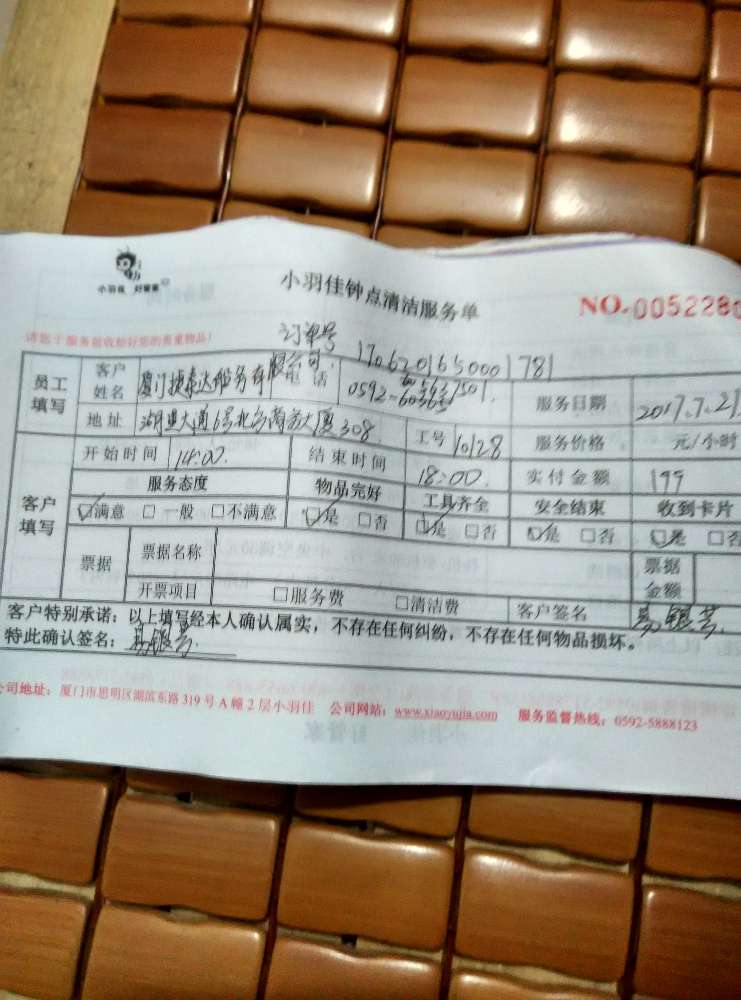 小羽佳 好管家
小羽佳钟点清洁服务单
NO.0052280
订单号 1706201650001781
员工填写
客户姓名
电话
0592-
服务日期 2017.7.21
地址
308
工号 10128
服务价格 元/小时
客户填写
开始时间 14:00
结束时间 18:00
实付金额 199
服务态度 物品完好 工具齐全 安全结束 收到卡片
☑满意 □一般 □不满意 ☑是 □否 ☑是 □否 ☑是 □否 ☑是 □否
票据
票据名称
票据金额
开票项目 □服务费 □清洁费
客户签名 易银芳
客户特别承诺：以上填写经本人确认属实，不存在任何纠纷，不存在任何物品损坏。
特此确认签名：易银芳
公司地址：厦门市思明区湖滨东路319号A幢2层小羽佳 公司网站：www.xiaoyujia.com 服务监督热线：0592-5888123